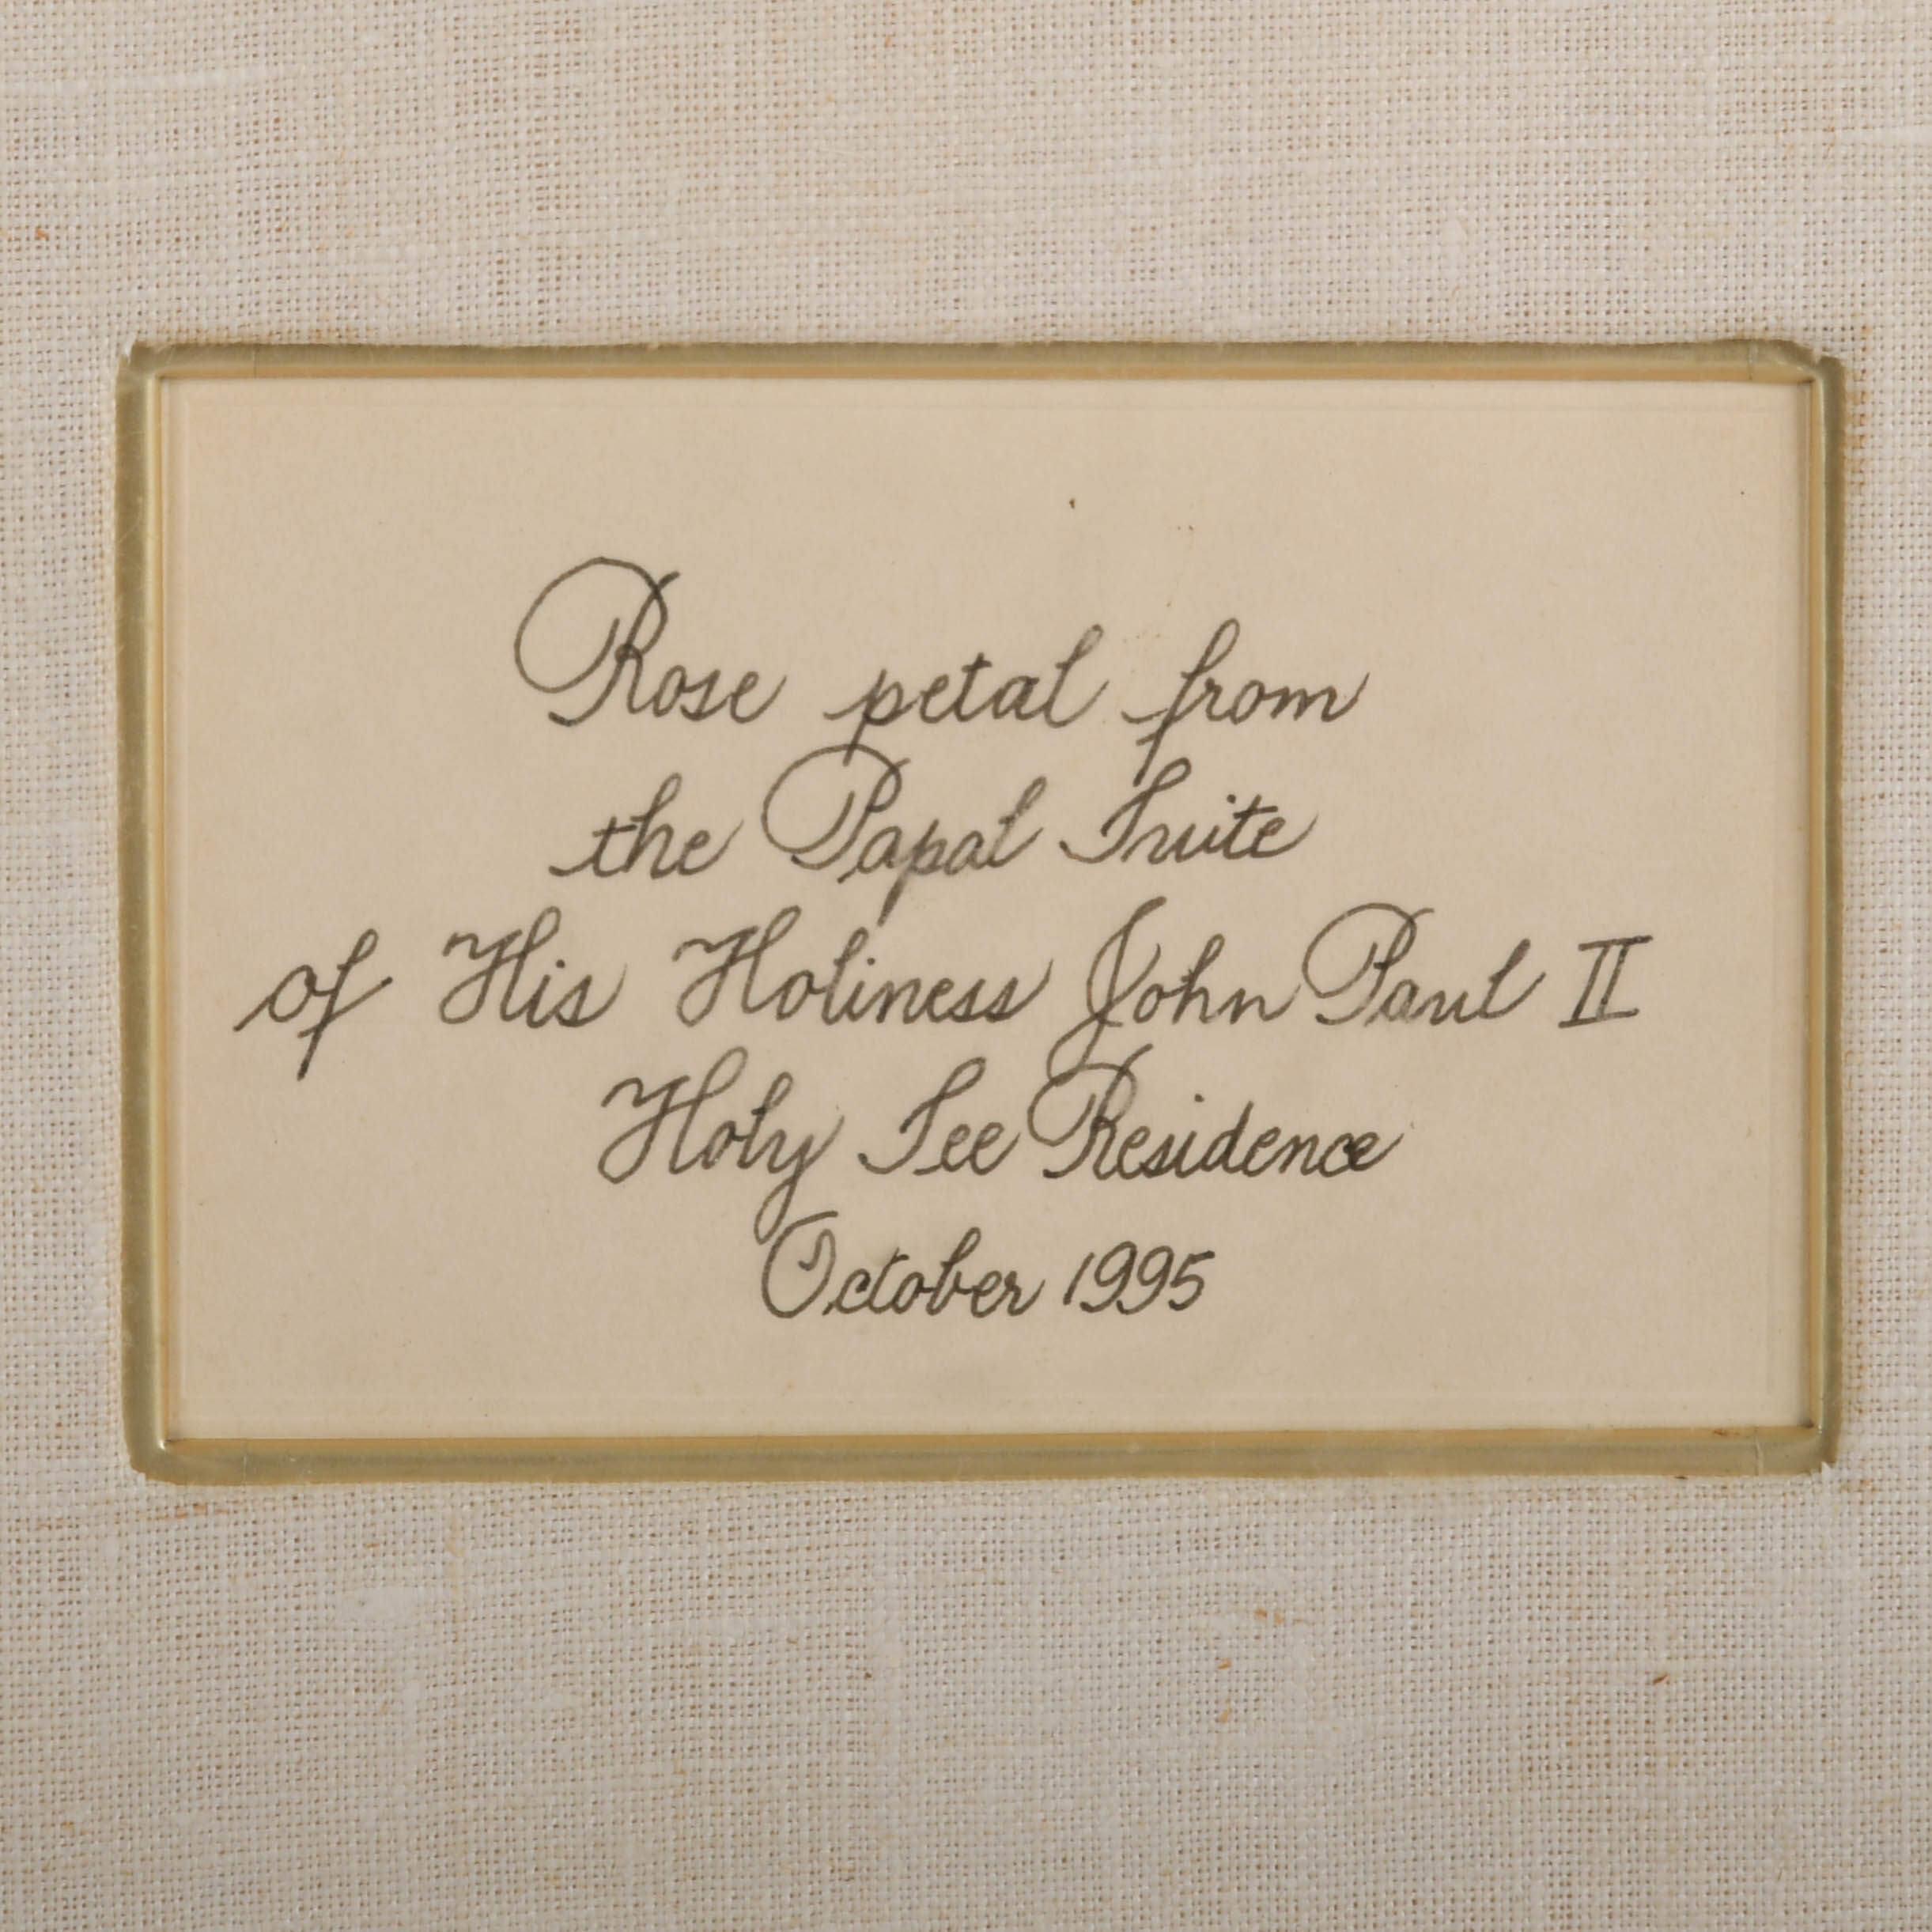 Rose petal from
the Papal Suite
of His Holiness John Paul II
Holy See Residence
October 1995